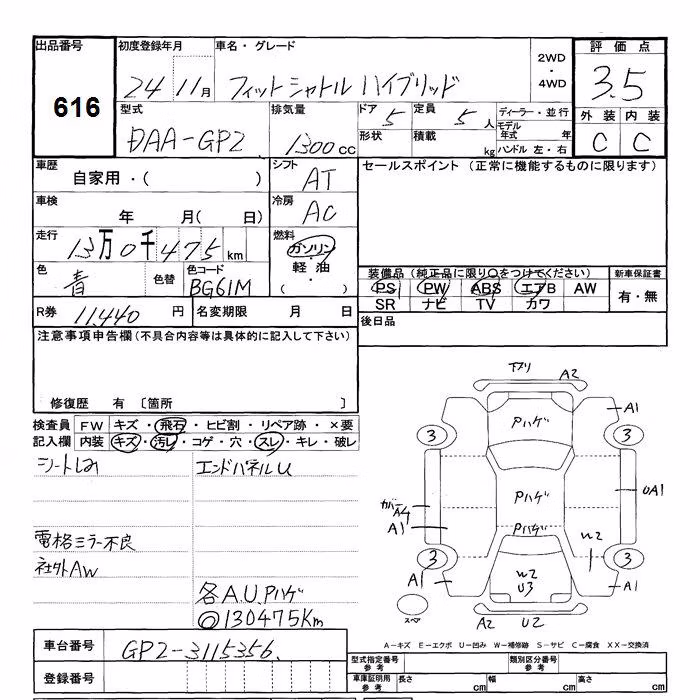 出品番号 初度登録年月 車名・グレード 2WD・4WD 評価点
616 24 11月 フィットシャトル ハイブリッド 3.5
型式 排気量 ドア 5 定員 5人 ディーラー・並行 外装 内装
DAA-GP2 1300cc 形状 積載 kg モデル年式 年 C C
ハンドル 左・右
車歴 シフト セールスポイント (正常に機能するものに限ります)
自家用・( ) AT
車検 冷房
年 月( 日) AC
走行 燃料
13万0千475km ガソリン・軽油
( )
色 色替 色コード 装備品(純正品に限り○をつけてください) 新車保証書
青 BG61M PS PW ABS エアB AW 有・無
SR ナビ TV カワ
R券 11,440円 名変期限 月 日 後日品
注意事項申告欄(不具合内容等は具体的に記入して下さい)
修復歴 有 〔箇所 〕
検査員 FW キズ・飛石・ヒビ割・リペア跡・×要
記入欄 内装 キズ・汚レ・コゲ・穴・スレ・キレ・破レ
エンドパネルU
電格ミラー不良
社外AW
各A.U.Pハゲ
◎130475Km
下ブリ A2
Pハゲ A1
3 3
Pハゲ UA1
カバー A4
A1 Pハゲ
W2
3 3
A1 W2 A1
U3
スペア A2 U2
A-キズ E-エクボ U-凹み W-補修跡 S-サビ C-腐食 XX-交換済
車台番号 GP2-3115356
登録番号
型式指定番号 参考 類別区分番号 参考
車庫証明用 参考 長さ cm 幅 cm 高さ cm